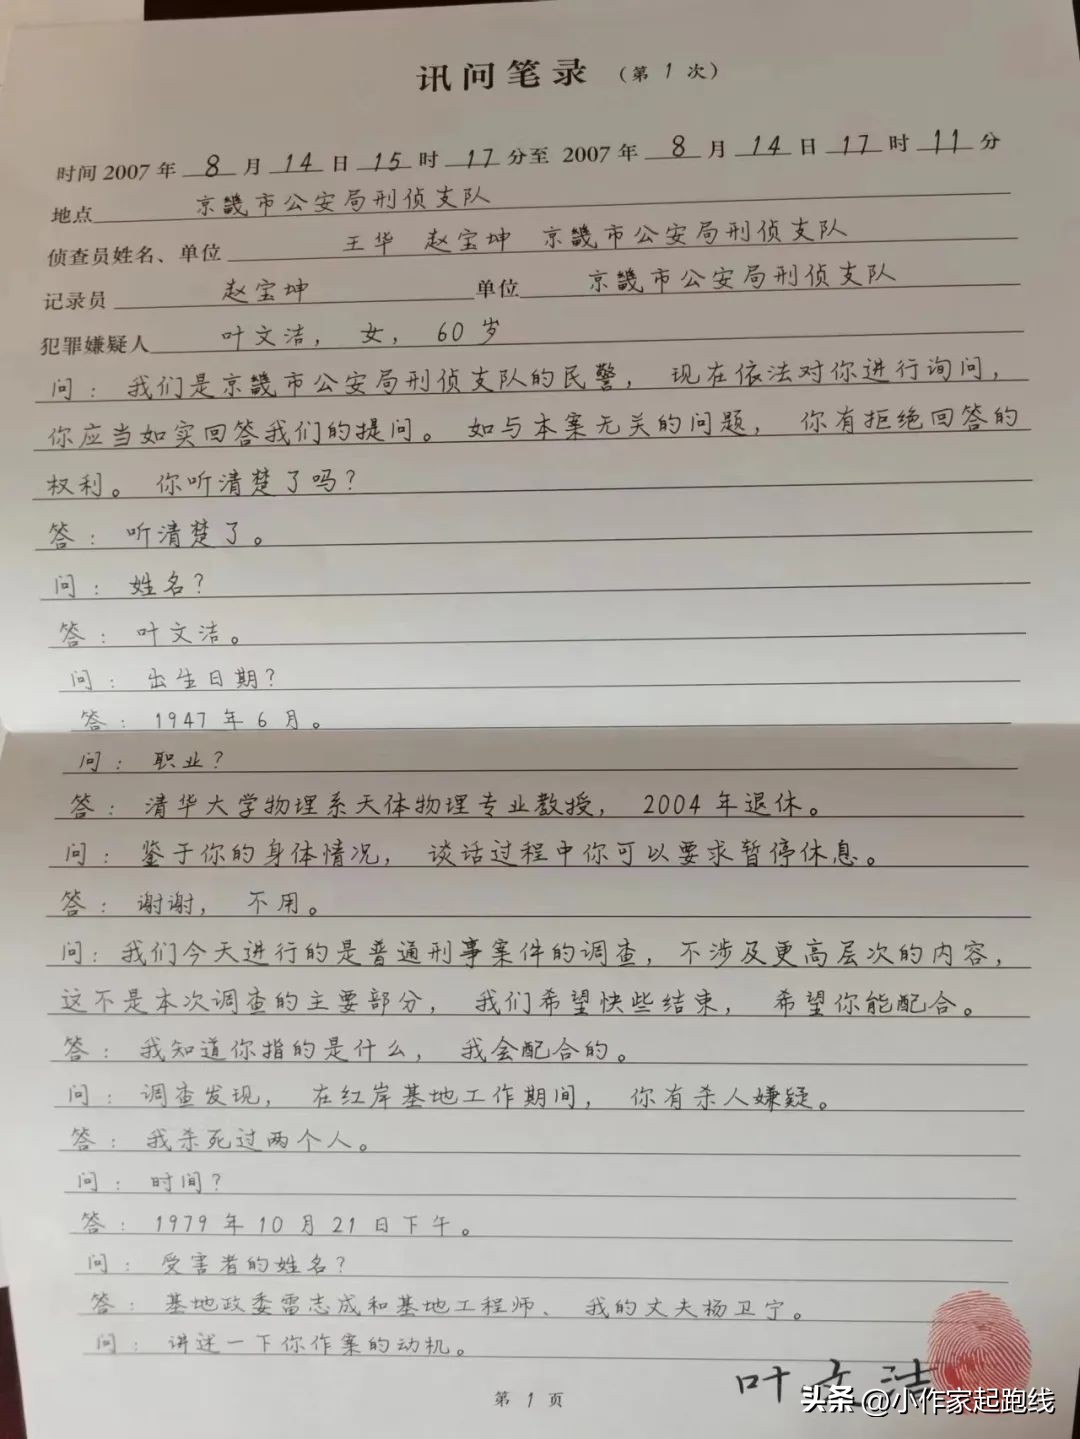 讯问笔录（第 1 次）
时间 2007 年 8 月 14 日 15 时 17 分至 2007 年 8 月 14 日 17 时 11 分
地点 京畿市公安局刑侦支队
侦查员姓名、单位 王华 赵宝坤 京畿市公安局刑侦支队
记录员 赵宝坤 单位 京畿市公安局刑侦支队
犯罪嫌疑人 叶文洁， 女， 60 岁
问：我们是京畿市公安局刑侦支队的民警，现在依法对你进行询问，
你应当如实回答我们的提问。如与本案无关的问题，你有拒绝回答的
权利。你听清楚了吗？
答：听清楚了。
问：姓名？
答：叶文洁。
问：出生日期？
答：1947 年 6 月。
问：职业？
答：清华大学物理系天体物理专业教授，2004 年退休。
问：鉴于你的身体情况，谈话过程中你可以要求暂停休息。
答：谢谢，不用。
问：我们今天进行的是普通刑事案件的调查，不涉及更高层次的内容，
这不是本次调查的主要部分，我们希望快些结束，希望你能配合。
答：我知道你指的是什么，我会配合的。
问：调查发现，在红岸基地工作期间，你有杀人嫌疑。
答：我杀死过两个人。
问：时间？
答：1979 年 10 月 21 日下午。
问：受害者的姓名？
答：基地政委雷志成和基地工程师、我的丈夫杨卫宁。
问：讲述一下你作案的动机。
叶文洁
第 1 页
头条 @小作家起跑线